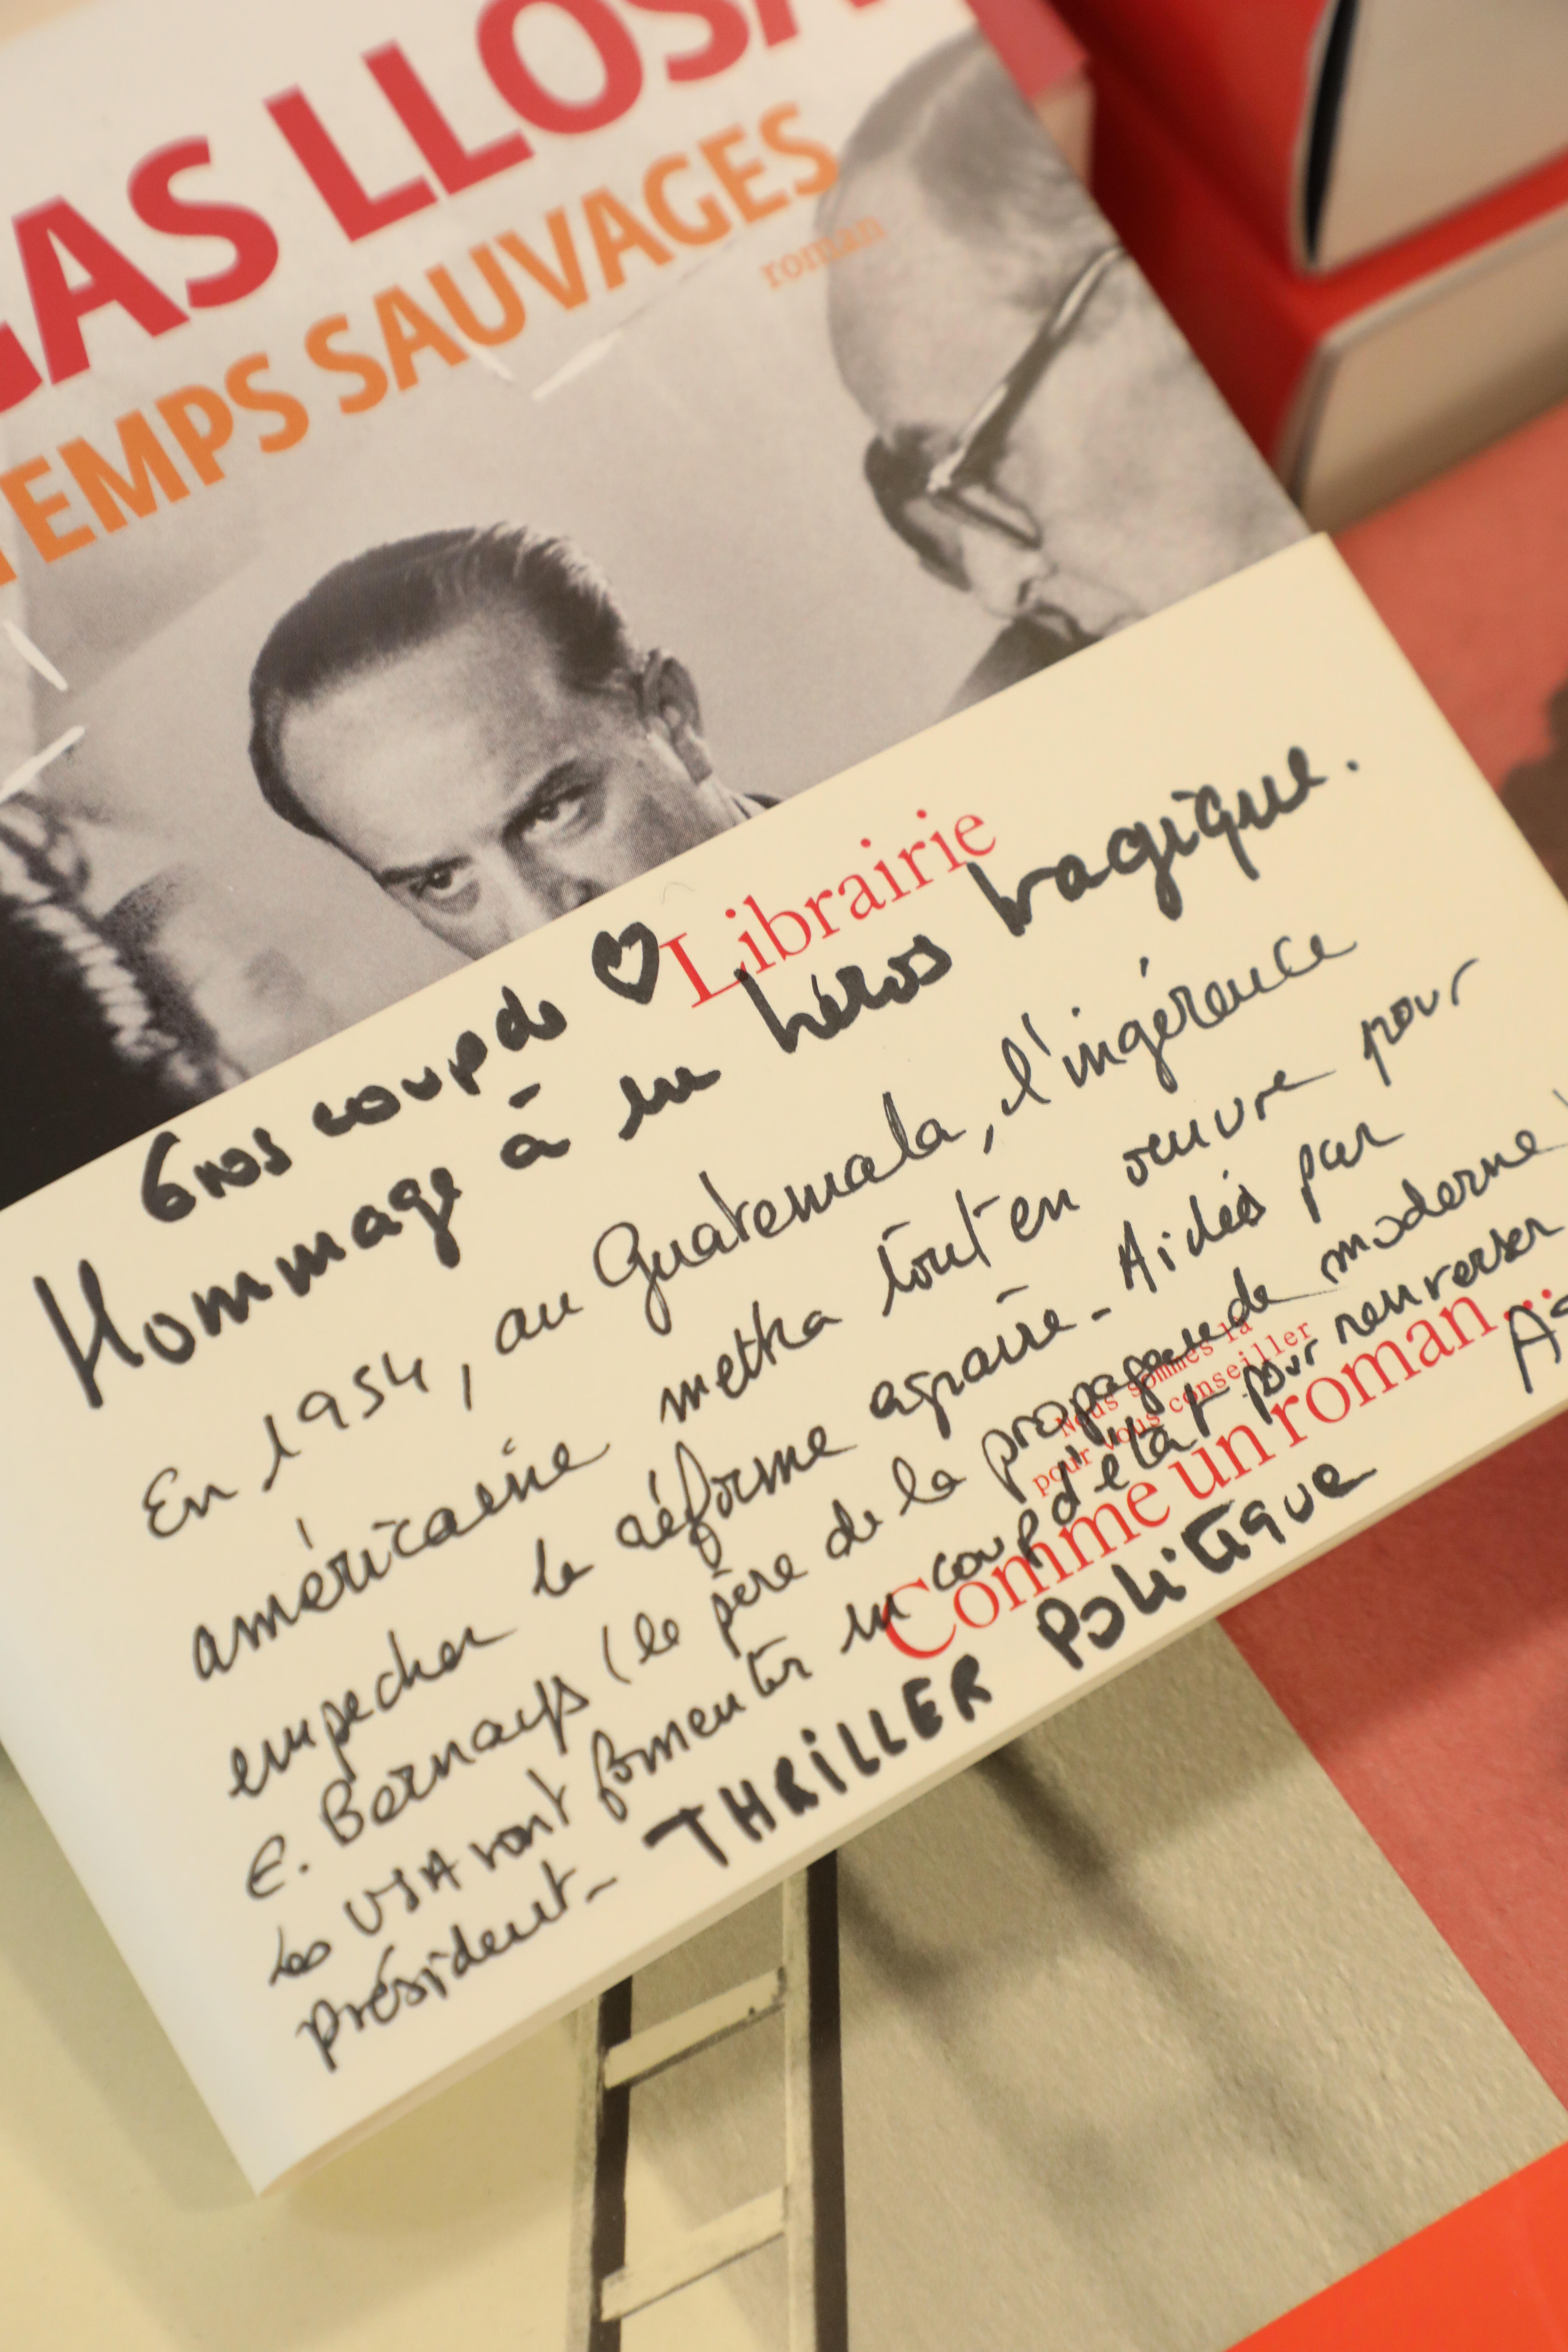 GAS LLOSA
TEMPS SAUVAGES
roman
Librairie
Gros coup de ♡
Hommage à un héros tragique.
En 1954, au Guatemala, l'ingérence
américaine mettra tout en œuvre pour
empecher la réforme agraire - Aidés par
E. Bernays (le père de la propagande moderne)
les USA vont fomenter un coup d'état pour renverser
président - THRiLLER POLiTiQUE
Nous sommes là
pour vous conseiller
Comme un roman...